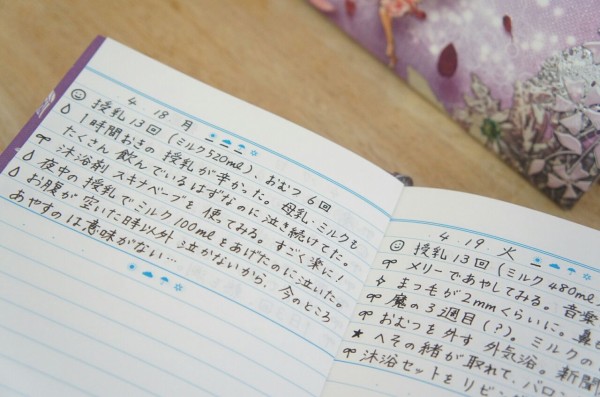 4.18 月
授乳13回(ミルク520ml)、おむつ6回
1時間おきの授乳が辛かった。母乳・ミルクも
たくさん飲んでいるはずなのに泣き続けてた。
沐浴剤 スキナベーブを使ってみる。すごく楽に!
夜中の授乳でミルク100mlをあげたのに泣いた。
お腹が空いた時以外泣かないから、今のところ
あやすのは意味がない…
4.19 火
授乳13回(ミルク480ml
メリーであやしてみる。音楽
まつもが2mmくらいに。鼻も
魔の3週目(?)。ミルクの
おむつを外す外気浴。新聞
へその緒が取れて、バロン
沐浴セットをリビ